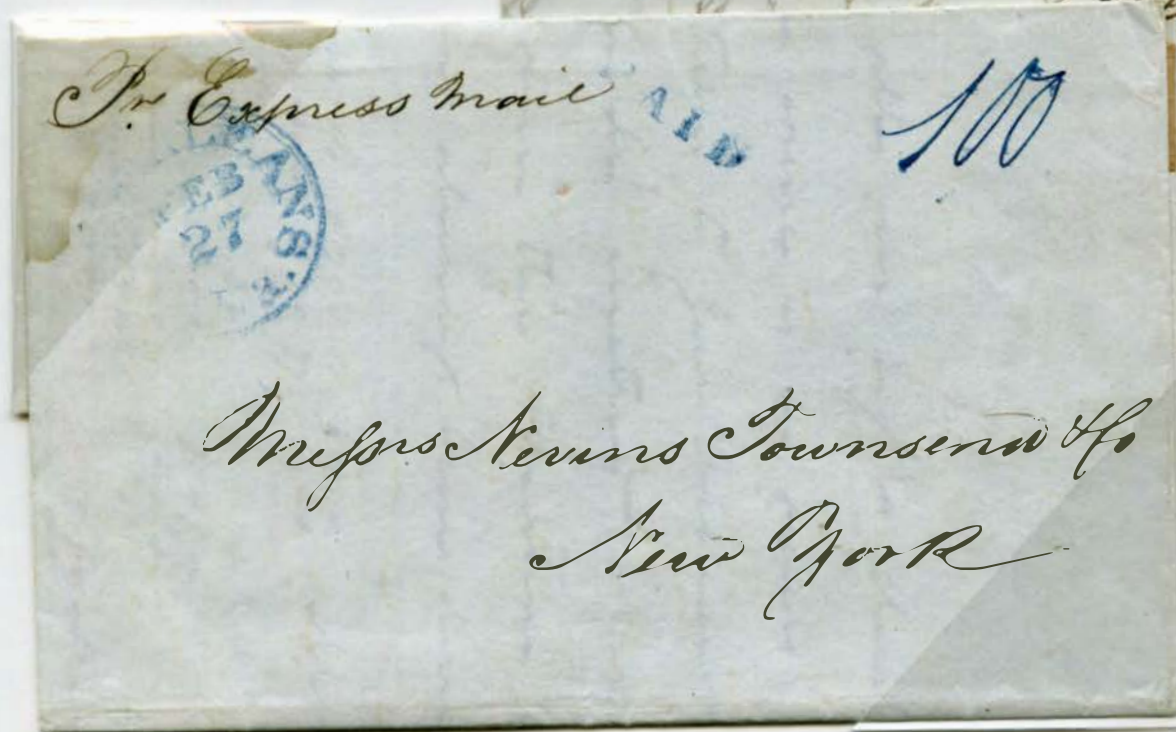 Pr Express Mail
AID
100
LEANS.
EB
27
Messrs Nevins Townsend & Co
New York